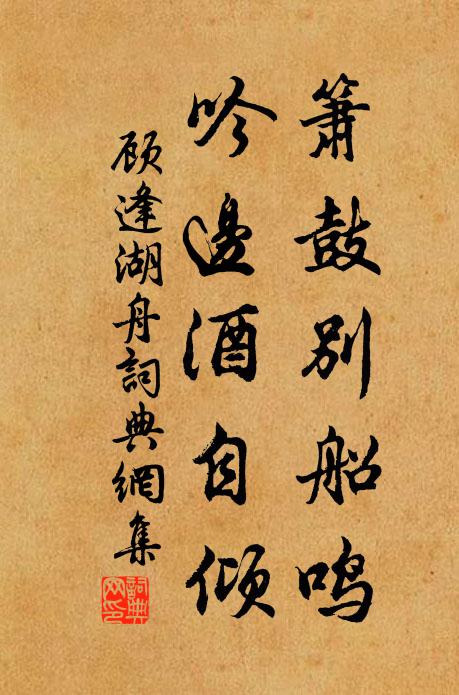 箫鼓别船鸣
吟邊酒自倾
顾逢湖舟詞典網集
詞典网印